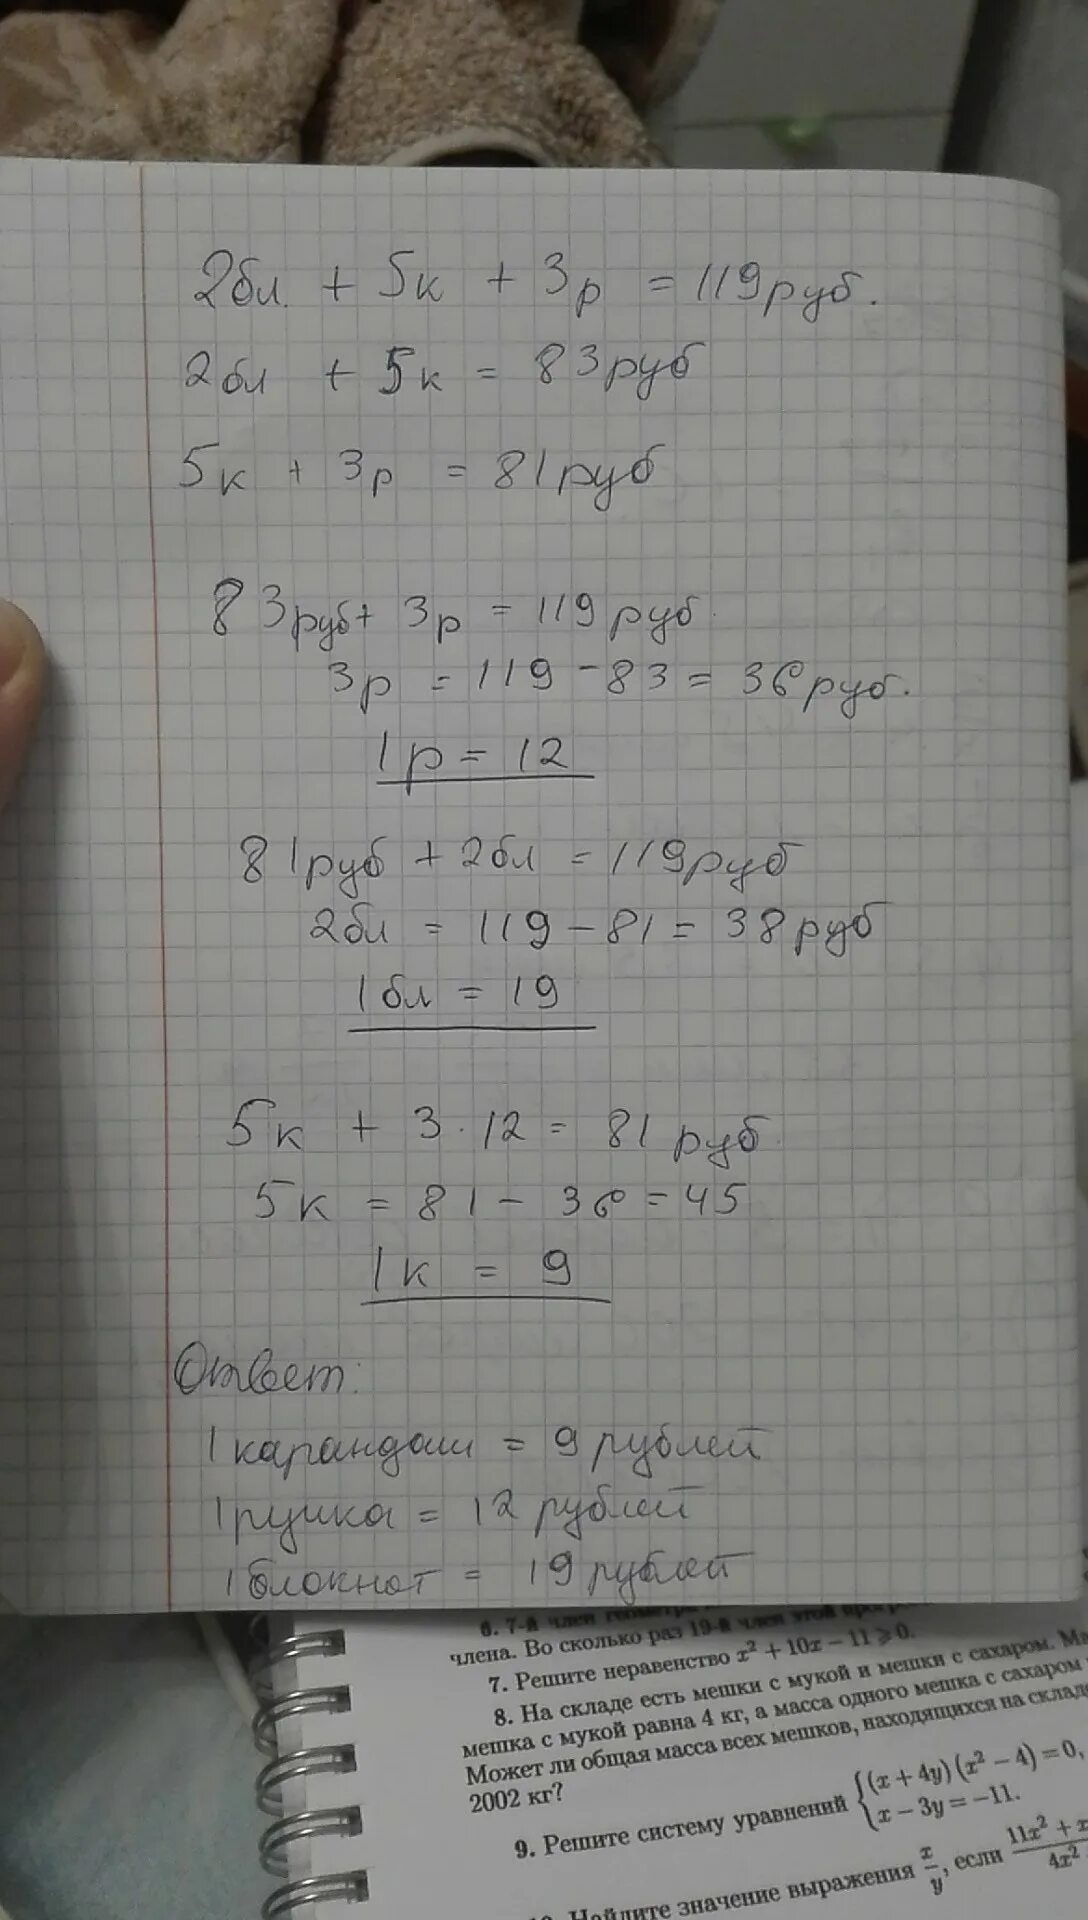 2бл. + 5к + 3р = 119руб.
2бл + 5к = 83руб
5к + 3р = 81руб
83руб + 3р = 119руб.
3р = 119 - 83 = 36руб.
1р = 12
81руб + 2бл = 119руб
2бл = 119 - 81 = 38руб
1бл = 19
5к + 3 · 12 = 81руб
5к = 81 - 36 = 45
1к = 9
Ответ:
1 карандаш = 9 рублей
1 ручка = 12 рублей
1 блокнот = 19 рублей
6. 7-й член
члена. Во сколько раз 19-й член этой
7. Решите неравенство x² + 10x − 11 ⩾ 0.
8. На складе есть мешки с мукой и мешки с сахаром.
мешка с мукой равна 4 кг, а масса одного мешка с сахаром
Может ли общая масса всех мешков, находящихся на складе
2002 кг?
9. Решите систему уравнений {(x + 4y)(x² − 4) = 0,
x − 3y = −11.
Найдите значение выражения x/y, если 11x² + x
4x²